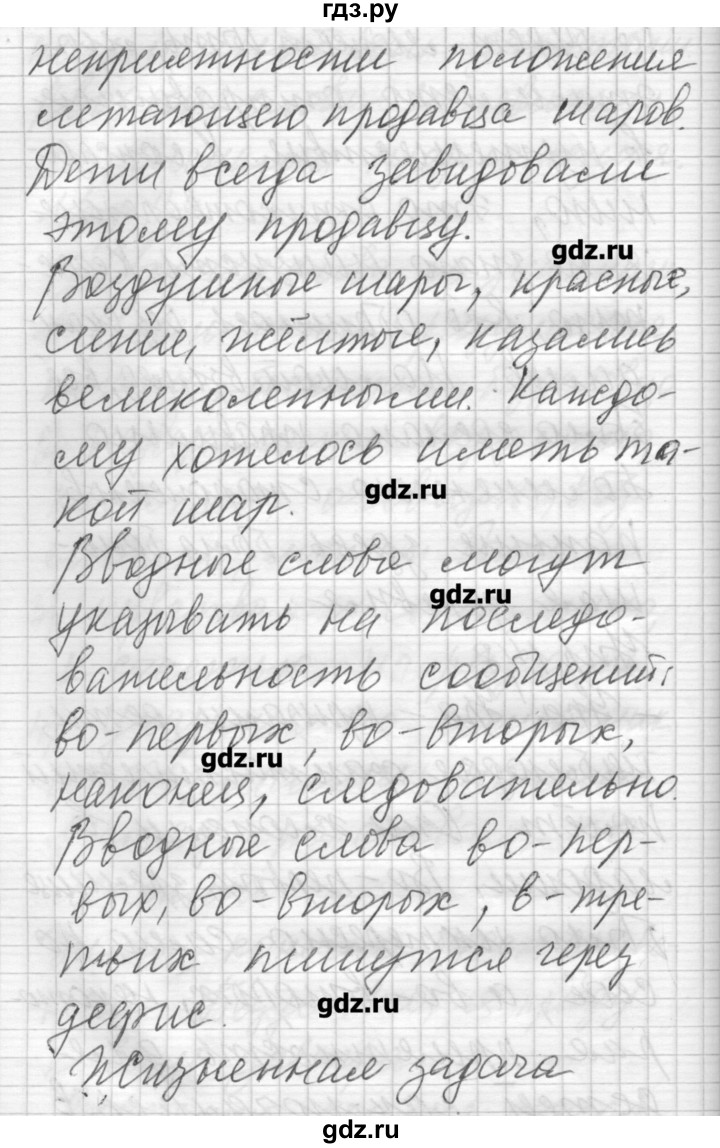 гдз.ру
неприятности положения
летающего продавца шаров.
Дети всегда завидовали
этому продавцу.
gdz.ru
Воздушные шары, красные,
синие, жёлтые, казались
великолепными. Каждо-
му хотелось иметь та-
gdz.ru
кой шар.
Вводные слова могут
gdz.ru
указывать на последо-
вательность сообщений:
во-первых, во-вторых,
gdz.ru
наконец, следовательно.
Вводные слова во-пер-
вых, во-вторых, в-тре-
тьих пишутся через
gdz.ru
дефис.
Жизненная задача
gdz.ru